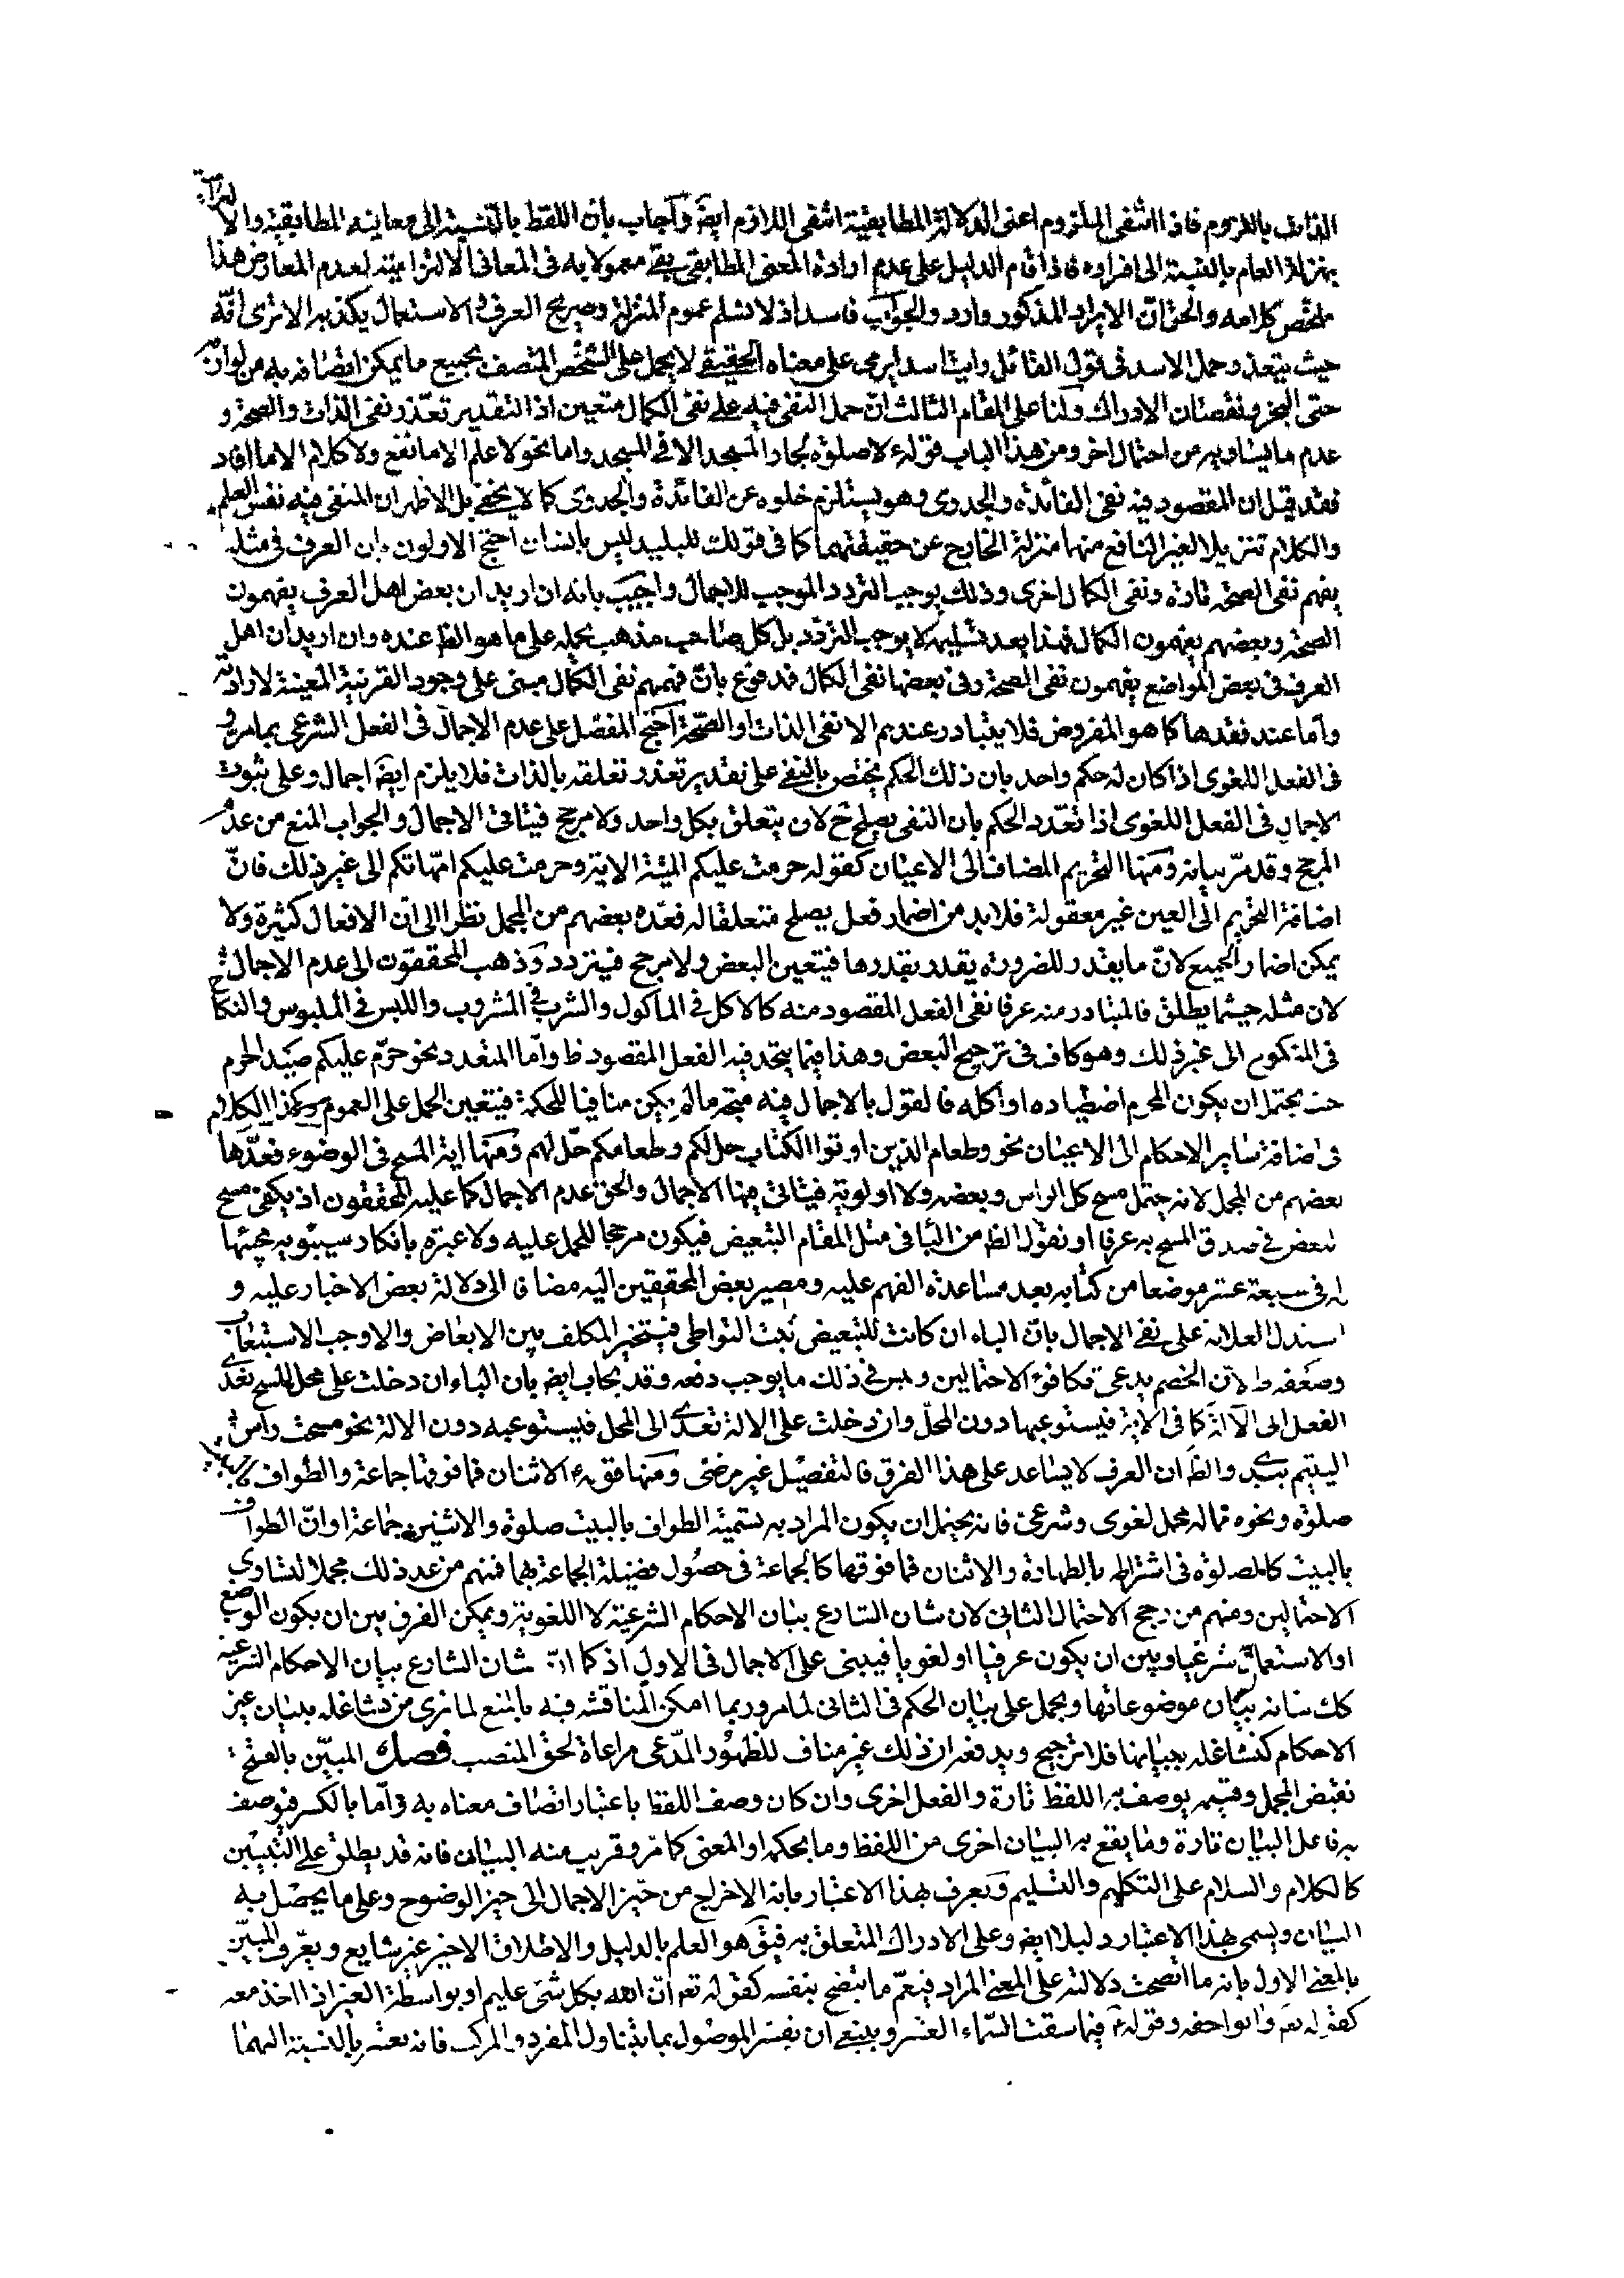 القائف باللزوم فاذا انتفى الملزوم اعنى الدلالة المطابقية انتفى اللازم ايضا واجاب بان اللفظ بالنسبة الى معانيه المطابقية والالتزامية
بمنزلة العام بالنسبة الى افراده فاذا قام الدليل على عدم ارادة المعنى المطابقى بقى معمولا به فى المعانى الالتزامية لعدم المعارض هذا
ملخص كلامه والحق ان الايراد المذكور وارد والجواب فاسد اذ لا نسلم عموم المنزلة وصريح العرف والاستعمال يكذبه الا ترى انه
حيث يتعذر حمل الاسد فى قول القائل رايت اسدا يرمى على معناه الحقيقى لا يحمل على الشخص المتصف بجميع ما يمكن اتصافه به من لوازمه
حتى البخر ونقصان الادراك ولنا على المقام الثالث ان حمل النفى فيه على نفى الكمال متعين اذ التقدير تعذر نفى الذات والصحة و
عدم ما يساويه من احتمال اخر ومن هذا الباب قوله ع لا صلوة لجار المسجد الا فى المسجد واما نحو لا علم الا ما نفع ولا كلام الا ما افاد
فقد قيل ان المقصود فيه نفى الفائدة والجدوى وهو يستلزم خلوه عن الفائدة والجدوى كما لا يخفى بل الاظهر ان المنفى فيه نفس العلم
والكلام تنزيلا لغير النافع منهما منزلة الخارج عن حقيقتهما كما فى قولك للبليد ليس بانسان احتج الاولون بان العرف فى مثله
يفهم نفى الصحة تارة ونفى الكمال اخرى وذلك يوجب التردد الموجب للاجمال واجيب بانه ان اريد ان بعض اهل العرف يفهمون
الصحة وبعضهم يفهمون الكمال فهذا بعد تسليمه لا يوجب التردد بل كل صاحب مذهب يحمله على ما هو الظ عنده وان اريد ان اهل
العرف فى بعض المواضع يفهمون نفى الصحة وفى بعضها نفى الكمال فمدفوع بان فهمهم نفى الكمال مبنى على وجود القرينة المعينة لارادته
واما عند فقدها كما هو المفروض فلا يتبادر عندهم الا نفى الذات او الصحة احتج المفصل على عدم الاجمال فى الفعل الشرعى بما مر و
فى الفعل اللغوى اذا كان له حكم واحد بان ذلك الحكم يختص بالنفى على تقدير تعذر تعلقه بالذات فلا يلزم ايضا اجمال وعلى ثبوت
الاجمال فى الفعل اللغوى اذا تعدد الحكم بان النفى يصلح ح لان يتعلق بكل واحد ولا مرجح فيتاتى الاجمال والجواب المنع من عدم
المرجح وقد مر بيانه ومنها التحريم المضاف الى الاعيان كقوله حرمت عليكم الميتة الاية وحرمت عليكم امهاتكم الى غير ذلك فان
اضافة التحريم الى العين غير معقولة فلا بد من اضمار فعل يصلح متعلقا له فعده بعضهم من المجمل نظرا الى ان الافعال كثيرة ولا
يمكن اضمار الجميع لان ما يقدر للضرورة يقدر بقدرها فيتعين البعض ولا مرجح فيتردد وذهب المحققون الى عدم الاجمال
لان مثله حيثما يطلق فالمتبادر منه عرفا نفى الفعل المقصود منه كالاكل فى الماكول والشرب فى المشروب واللبس فى الملبوس والنكاح
فى المنكوح الى غير ذلك وهو كاف فى ترجيح البعض وهذا فيما يتحد فيه الفعل المقصود ظ واما المتعدد نحو حرم عليكم صيد الحرم
حيث يحتمل ان يكون المحرم اصطياده او اكله فالقول بالاجمال فيه متجه ما لم يكن منافيا للحكمة فيتعين الحمل على العموم وكذا الكلام
فى اضافة ساير الاحكام الى الاعيان نحو وطعام الذين اوتوا الكتاب حل لكم وطعامكم حل لهم ومنها اية المسح فى الوضوء فعدها
بعضهم من المجمل لانه يحتمل مسح كل الراس وبعضه ولا اولوية فيتاتى فيها الاجمال والحق عدم الاجمال كما عليه المحققون اذ يكفى مسح
البعض فى صدق المسح به عرفا او نقول الظ من البا فى مثل المقام التبعيض فيكون مرجحا للحمل عليه ولا عبرة بانكار سيبويه مجيئها
له فى سبعة عشر موضعا من كتابه بعد مساعدة الفهم عليه ومصير بعض المحققين اليه مضافا الى دلالة بعض الاخبار عليه و
استدل العلامة على نفى الاجمال بان الباء ان كانت للتبعيض ثبت التواطى فيتخير المكلف بين الابعاض والا وجب الاستيعاب
وضعفه ظ لان الخصم يدعى تكافؤ الاحتمالين وليس فى ذلك ما يوجب دفعه وقد يجاب ايضا بان الباء ان دخلت على محل المسح تعدى
الفعل الى الآلة كما فى الاية فيستوعبها دون المحل وان دخلت على الالة تعدى الى المحل فيستوعبه دون الالة نحو مسحت راس
اليتيم بيدى والظ ان العرف لا يساعد على هذا الفرق فالتفصيل غير مرضى ومنها قوله ع الاثنان فما فوقها جماعة والطواف بالبيت
صلوة ونحوه مما له محمل لغوى وشرعى فانه يحتمل ان يكون المراد به تسمية الطواف بالبيت صلوة والاثنين جماعة او ان الطواف
بالبيت كالصلوة فى اشتراطه بالطهارة والاثنان فما فوقها كالجماعة فى حصول فضيلة الجماعة بهما فمنهم من عد ذلك مجملا لتساوى
الاحتمالين ومنهم من رجح الاحتمال الثانى لان شان الشارع بيان الاحكام الشرعية لا اللغوية ويمكن الفرق بين ان يكون الوضع
او الاستعمال شرعيا وبين ان يكون عرفيا او لغويا فيبنى على الاجمال فى الاول اذ كما ان شان الشارع بيان الاحكام الشرعية
كك شانه بيان موضوعاتها ويحمل على بيان الحكم فى الثانى لما مر وربما امكن المناقشه فيه بالمنع لما نرى من تشاغله ببيان غير
الاحكام كتشاغله ببيانها فلا ترجيح ويدفعه ان ذلك غير مناف للظهور المدعى مراعاة لحق المنصب فصل المبين بالفتح
نقيض المجمل وقسيمه يوصف به اللفظ تارة والفعل اخرى وان كان وصف اللفظ باعتبار اتصاف معناه به واما بالكسر فيوصف
به فاعل البيان تارة وما يقع به البيان اخرى من اللفظ وما بحكمه او المعنى كما مر وقريب منه البيان فانه قد يطلق على التبيين
كالكلام والسلام على التكليم والتسليم ويعرف بهذا الاعتبار بانه الاخراج من حيز الاجمال الى حيز الوضوح وعلى ما يحصل به
البيان ويسمى بهذا الاعتبار دليلا ايضا وعلى الادراك المتعلق به فيق هو العلم بالدليل والاطلاق الاخير غير شايع ويعرف المبين
بالمعنى الاول بانه ما اتضحت دلالته على المعنى المراد فيعم ما يتضح بنفسه كقوله تع ان الله بكل شىء عليم او بواسطة الغير اذا اخذ معه
كقوله تع واتوا حقه وقوله ع فيما سقت السماء العشر وينبغى ان يفسر الموصول بما يتناول المفرد والمركب فانه يعتبر بالنسبة اليهما